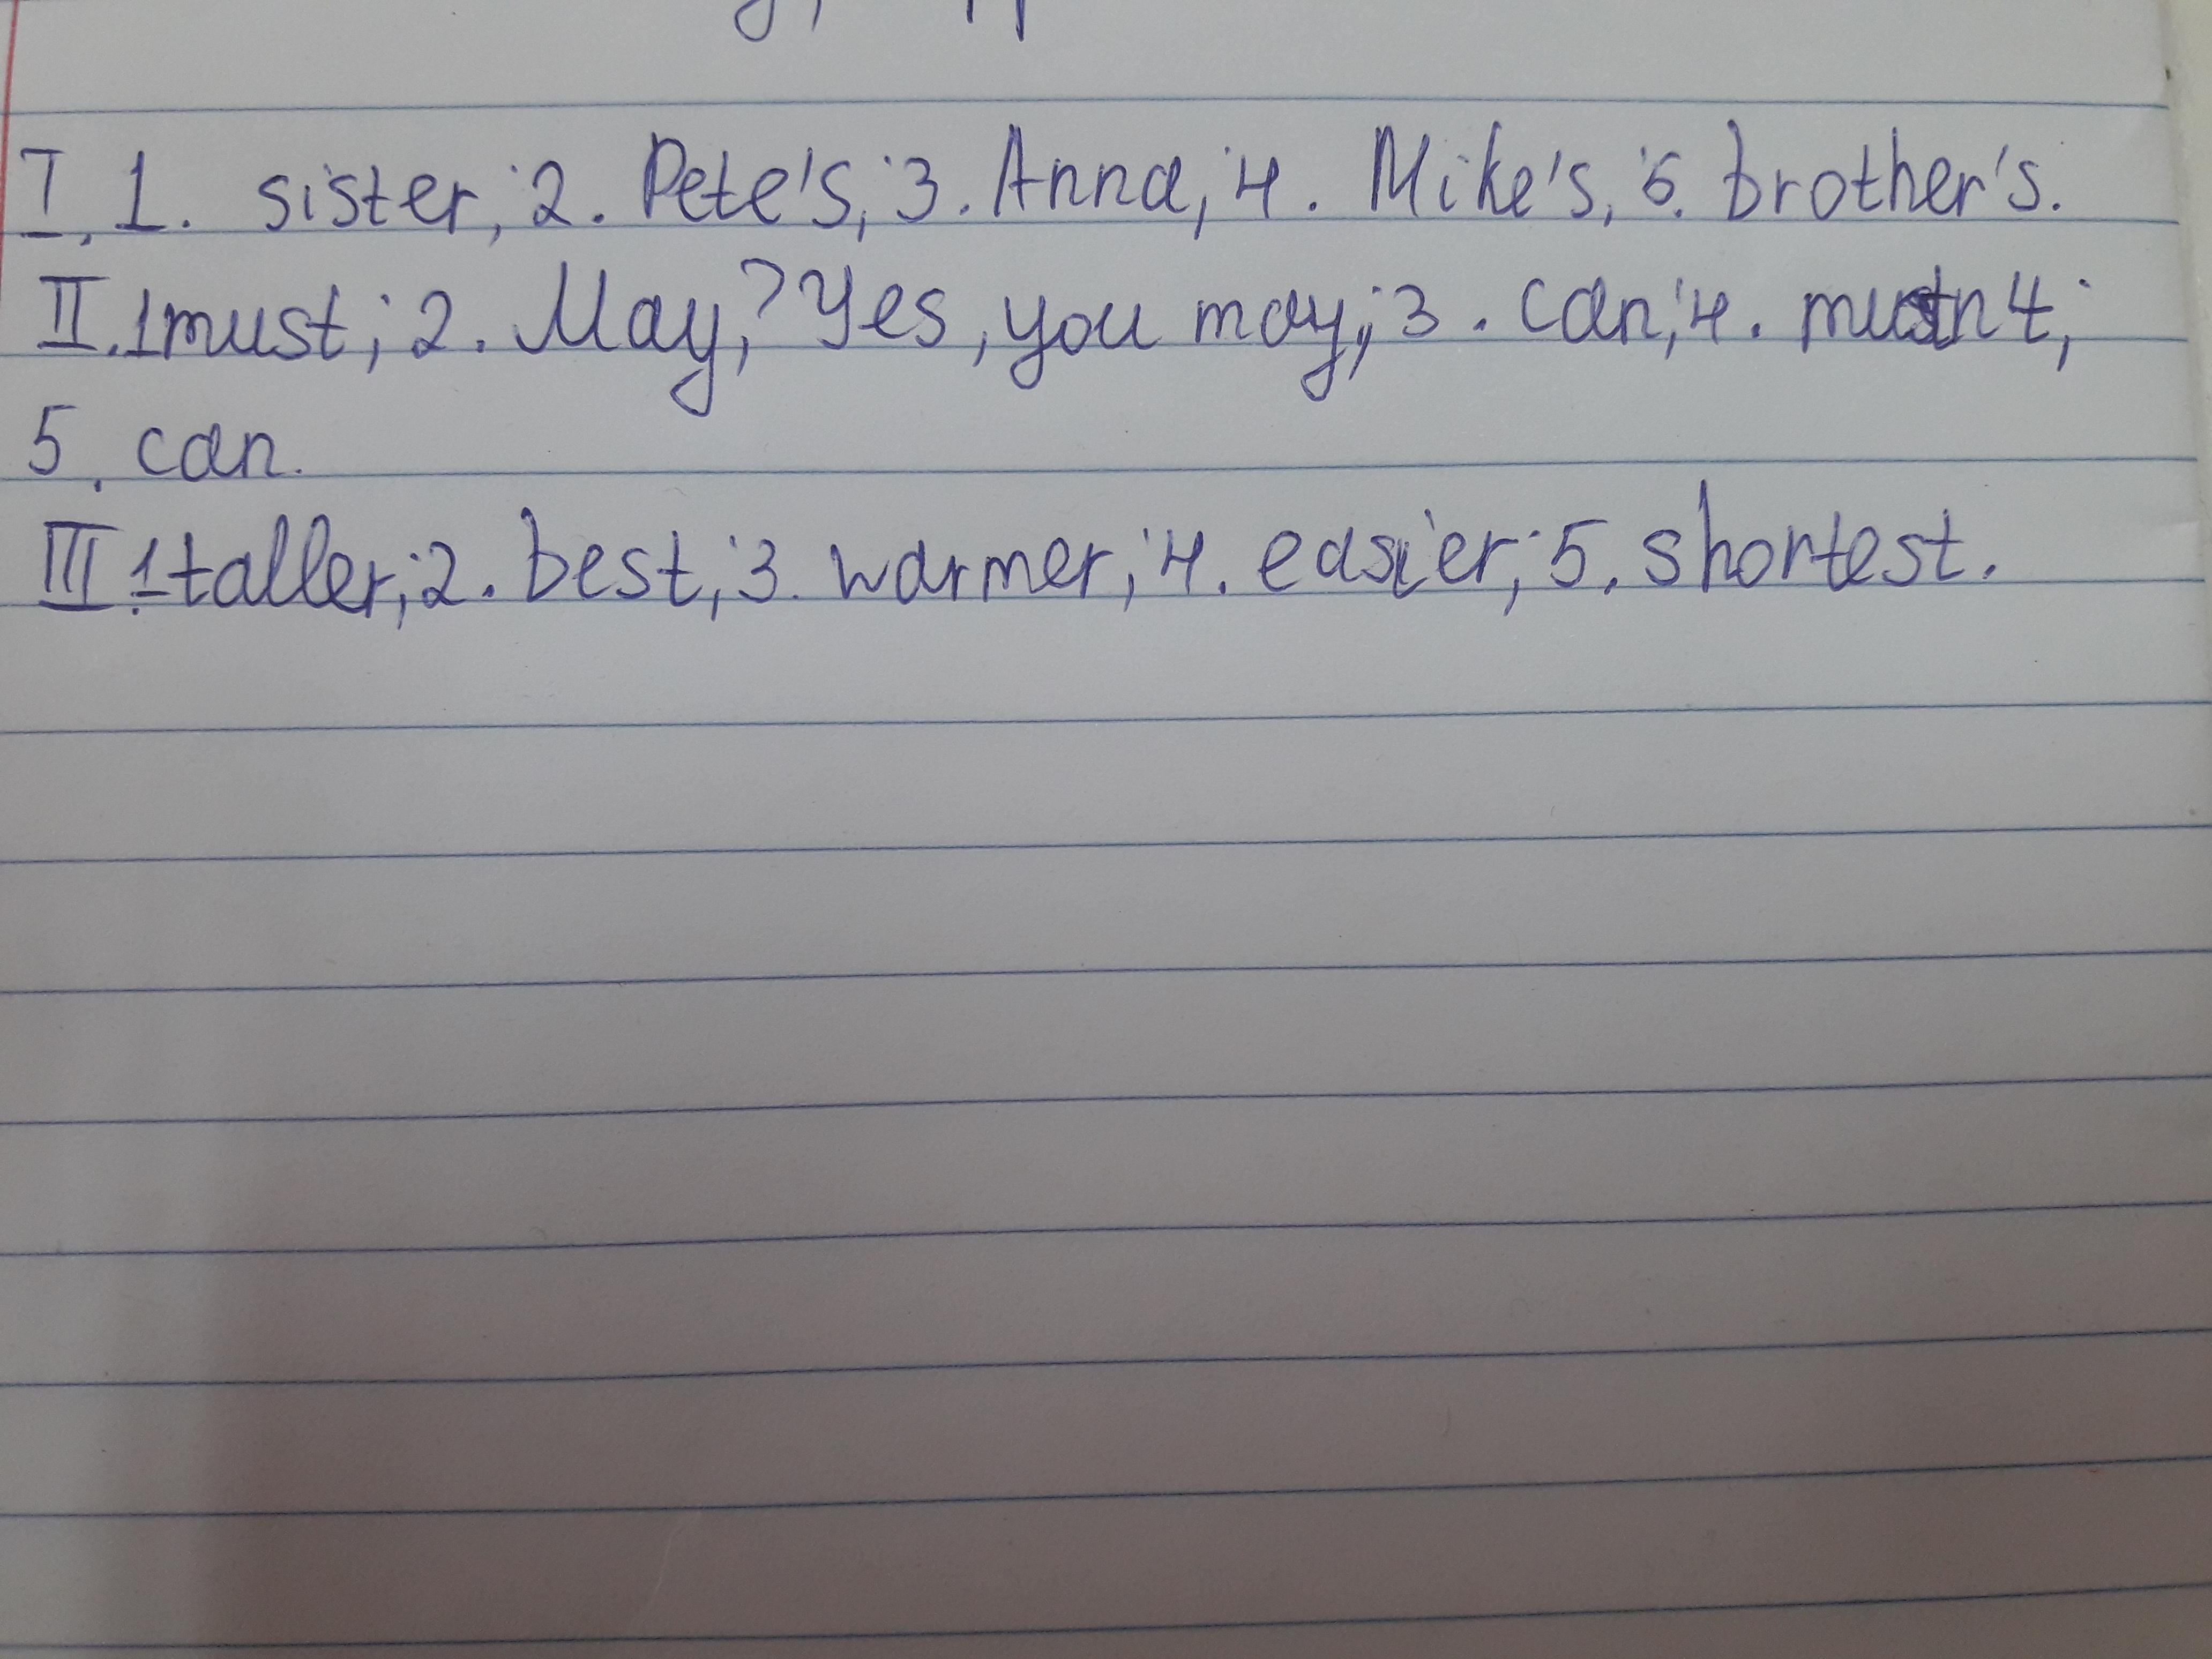 I. 1. sister; 2. Pete's; 3. Anna; 4. Mike's; 5. brother's.
II. 1 must; 2. May? Yes, you may; 3. can; 4. mustn't;
5. can.
III. 1 taller; 2. best; 3. warmer; 4. easier; 5. shortest.